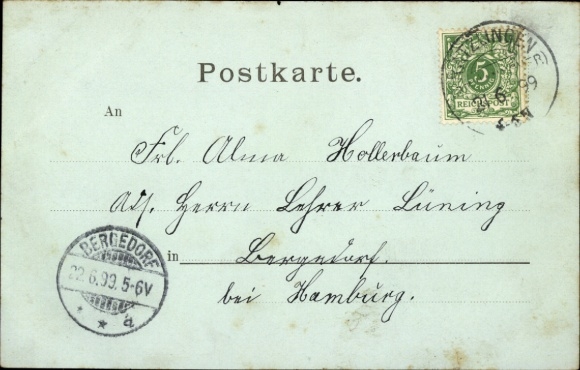 Postkarte.
5
REICHSPOST
21 6 99
5-6N
An
Frl. Alma Hollerbaum
Adr. Herrn Lehrer Lüning
in Bergedorf.
bei Hamburg.
BERGEDORF
22.6.99.5-6V
* * a